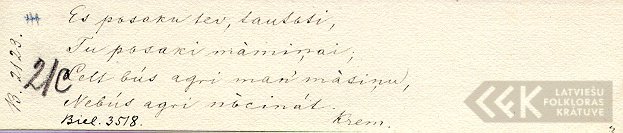 Es posaku tev, tautoti,
Tu posaki màmiņai;
Celt bús agri man' màsiņu,
Nebús agri nòcinát.
Biel. 3518. Krem.
B. 2123.
21c
LATVIEŠU
FOLKLORAS
KRĀTUVE